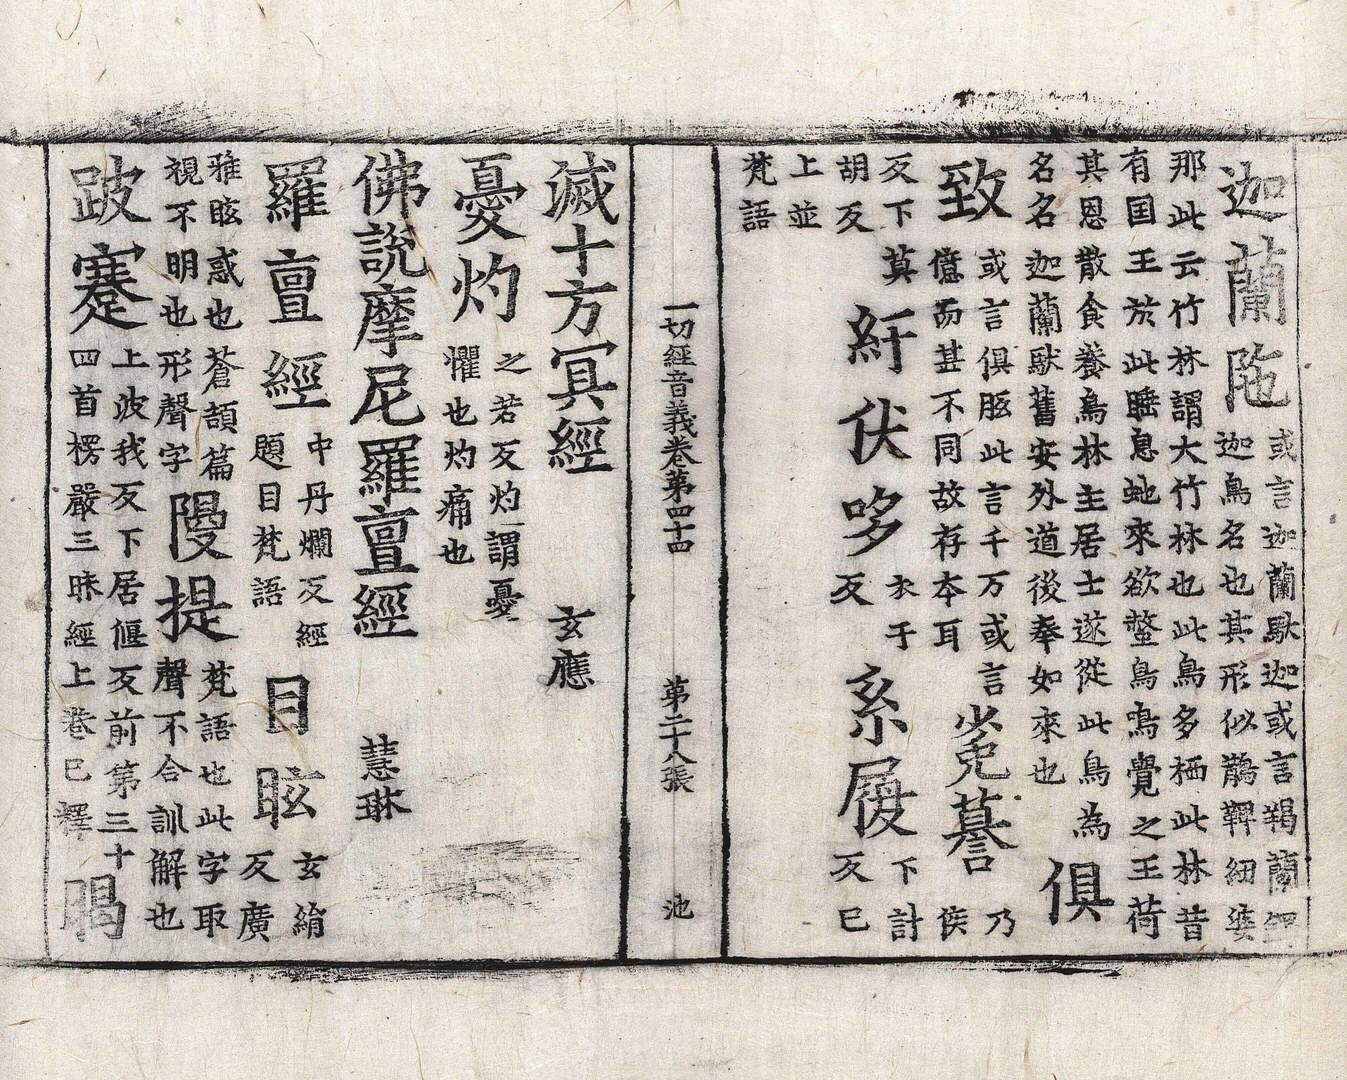 迦蘭陁
或言迦蘭馱迦或言羯蘭鐸
迦鳥名也其形似鵲鞞紐婆
那此云竹林謂大竹林也此鳥多栖此林昔
有国王於此睡息虵來欲螫鳥鳴覺之王荷
其恩散食養鳥林主居士遂從此鳥為
名名迦蘭馱舊安外道後奉如來也
俱
致
或言俱胝此言千万或言
億而甚不同故存本耳
㝹謩
乃
侯
反下莫
胡反
紆伏哆
衣于
反
系屐
下計
反已
上並
梵語
一切經音義卷第四十四 第二十八張 池
滅十方冥經 玄應
憂灼
之若反灼謂憂
懼也灼痛也
佛說摩尼羅亶經 慧琳
羅亶經
中丹爛反經
題目梵語
目眩
玄絹
反廣
雅眩惑也蒼頡篇
視不明也形聲字
提
梵語也此字取
聲不合訓解也
跛蹇
上波我反下居偃反前第三十
四首楞嚴三昧經上卷已釋
暍